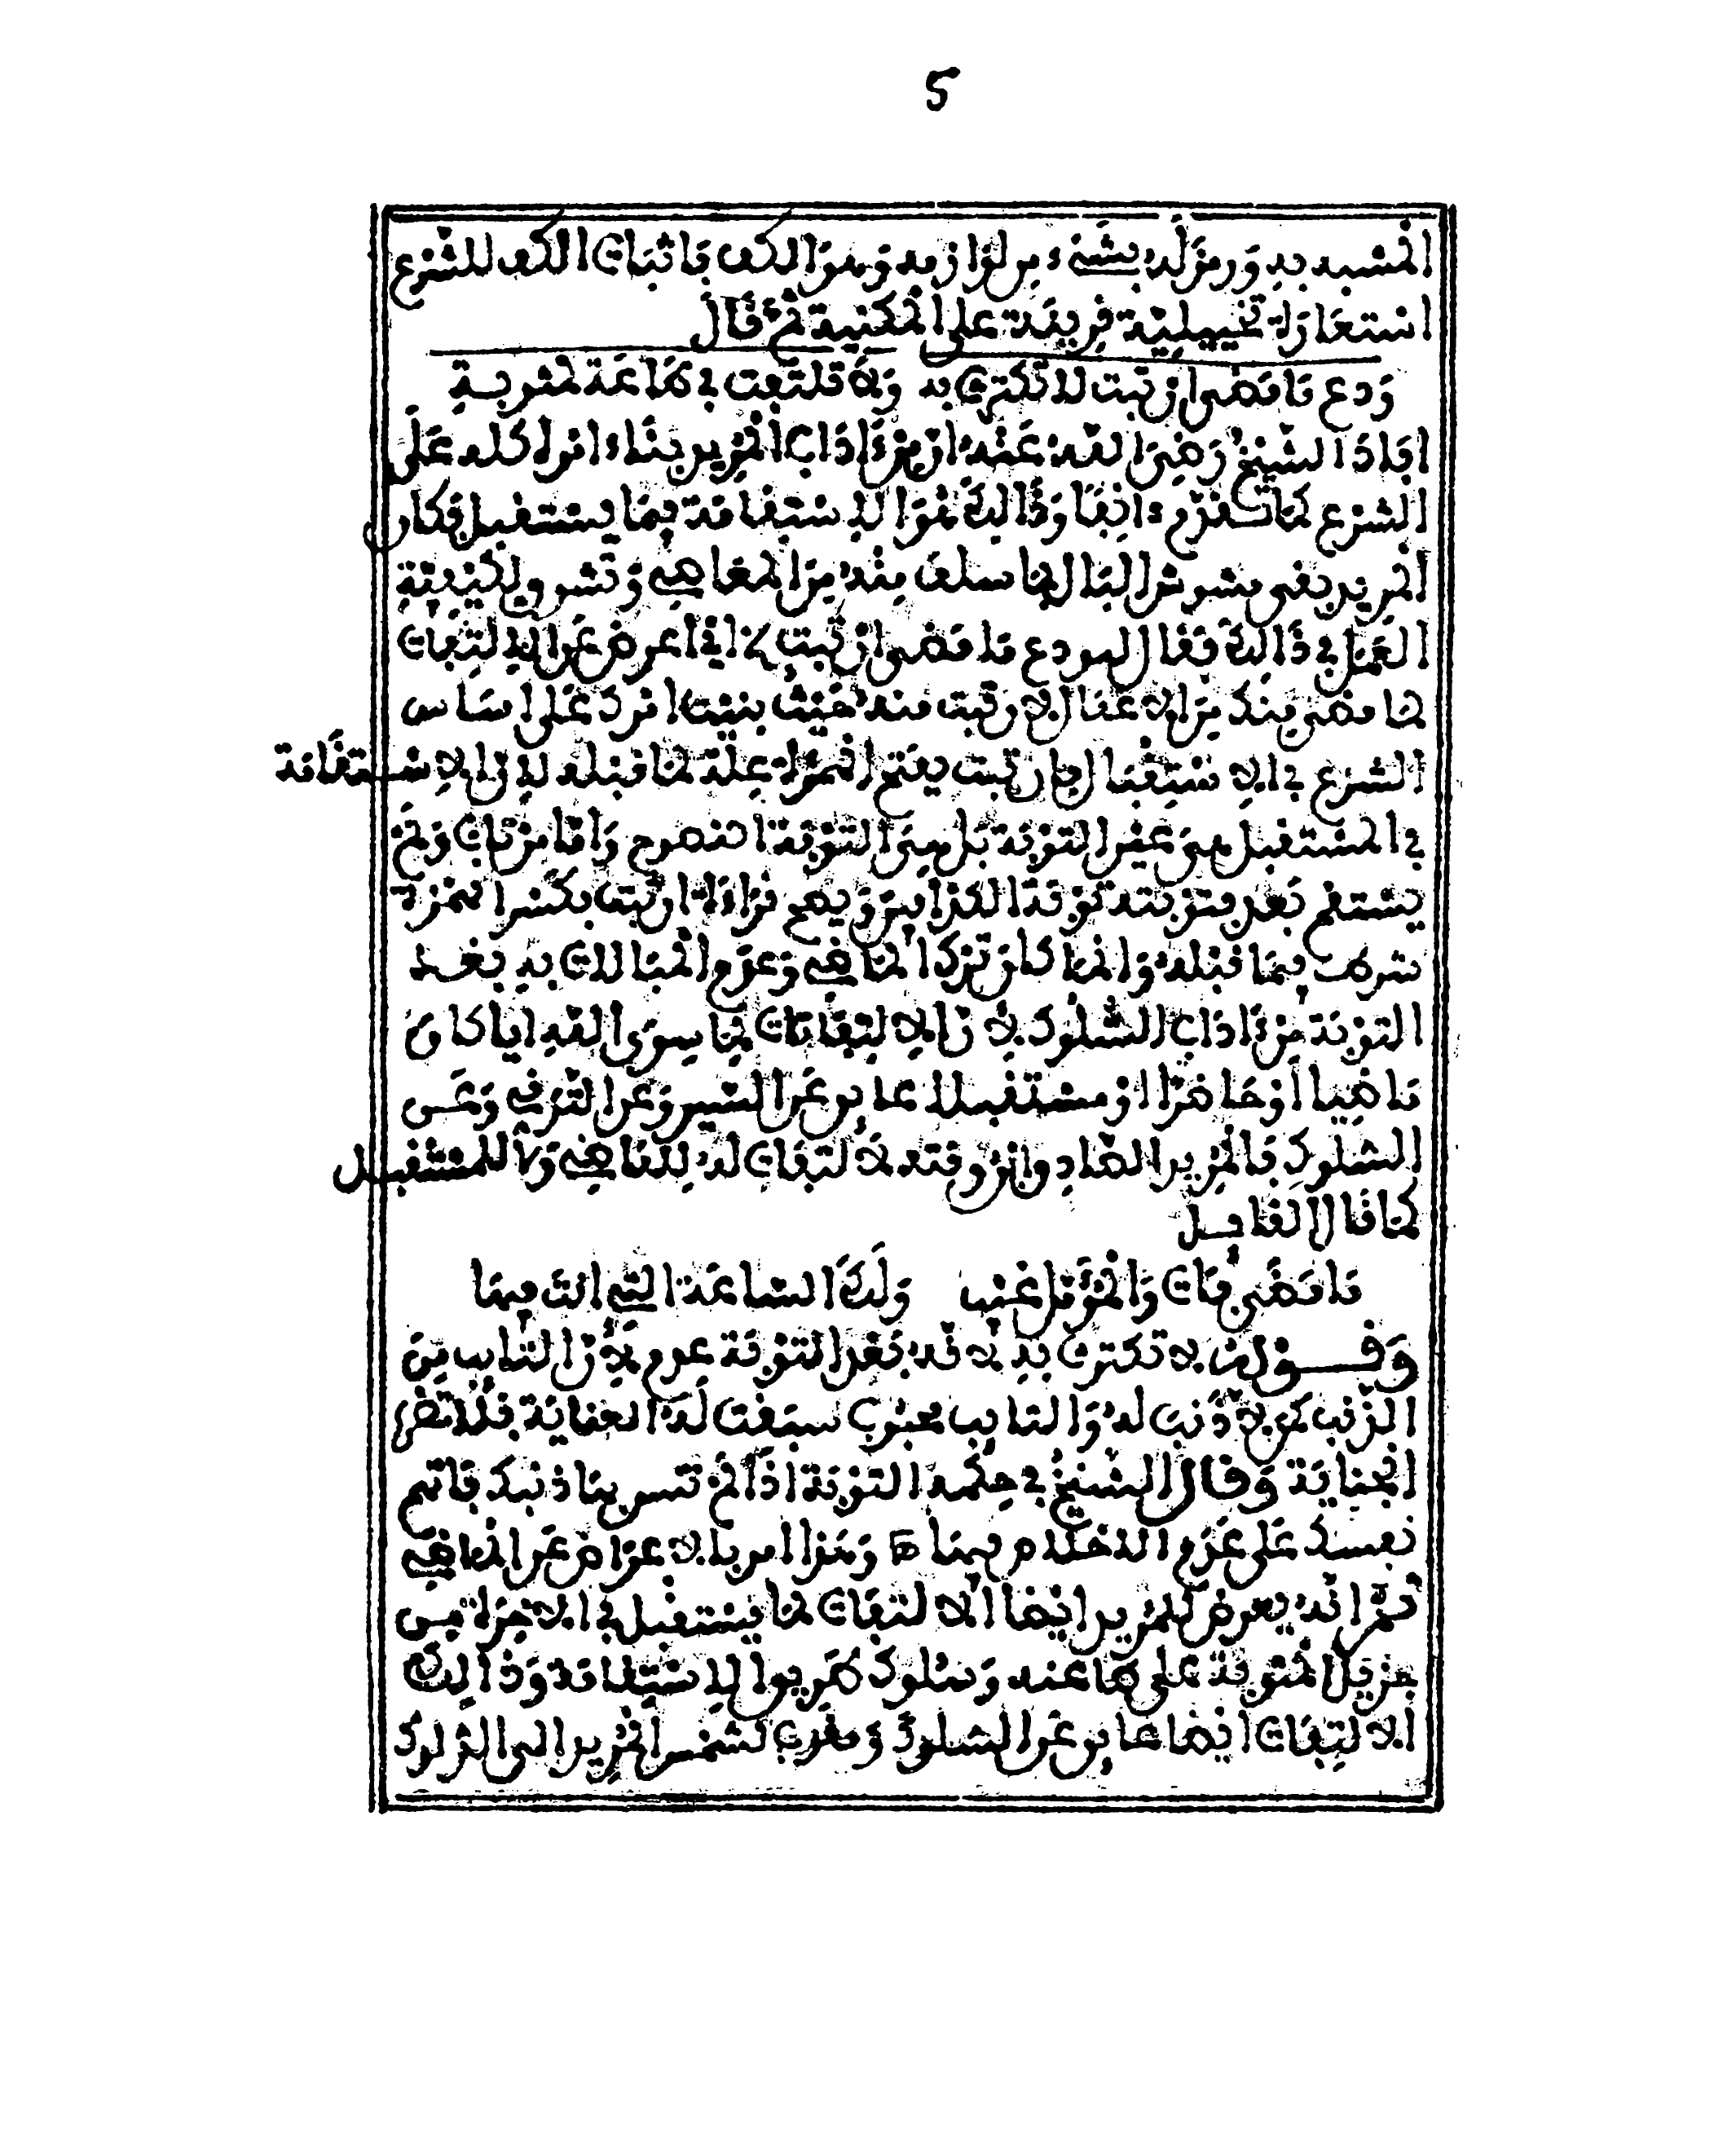 5
المشبه به ورمز له بشيء من لوازمه وهو الكف فاثبات الكف للشرع
استعارة تخييلية قرينة على المكنية ثم قال
ودع ما مضى ان تبت لا تكترث به ولا تلتفت في طاعة لمثوبة
افاد الشيخ رضي الله عنه ان من ءاداب المريد بناء امره كله على
الشرع كما تقدم ءانفا وذالك هو الاستقامة فيما يستقبل فكان
المريد بقي مشوش البال لما سلف منه من المعاصي وتشوف لكيفية
العمل في ذالك فقال له ودع ما مضى ان تبت اي اعرض عن الالتفات
لما مضى منك من الافعال لان تبت منه حيث بنيت امرك على اساس
الشرع في الاستقبال فان تبت بفتح الهمزة علة لما قبله لان الاستقامة
في المستقبل هي عين التوبة بل هي التوبة النصوح واما من تاب ولم
يستقم بعد فتوبته توبة الكذابين ويصح قراءة ان تبت بكسر الهمزة
شرطت فيما قبله وانما كان ترك الماضي وعدم المبالات به بعد
التوبة من ءاداب السلوك لان الالتفات لما سوى الله ايا كان
ماضيا او حاضرا او مستقبلا عايق عن السير وعن الترقي وعن
السلوك فالمريد الصادق ابن وقته لا التفات له للماضي ولا للمستقبل
كما قال القايل
ما مضى فات والمؤمل غيب ولك الساعة التي انت فيها
وقوله لا تكترث به لانه بعد التوبة عدم لان التايب من
الذنب كمن لا ذنب له والتايب محبوب سبقت له العناية فلا تضره
الجناية وقال الشيخ في حكمه التوبة اذا لم تنس بها ذنبك فاتهم
نفسك على عدم الاخلاص فيها اه وهذا امر بالاعراض عن الماضي
ثم انه يعرض للمريد ايضا الالتفات لما يستقبل في الاخرة من
جزيل المثوبة على طاعته وسلوك طريق الاستقامة وذالك
الالتفات ايضا عايق عن السلوك ومقرب لشمس المريد الى الدلوك